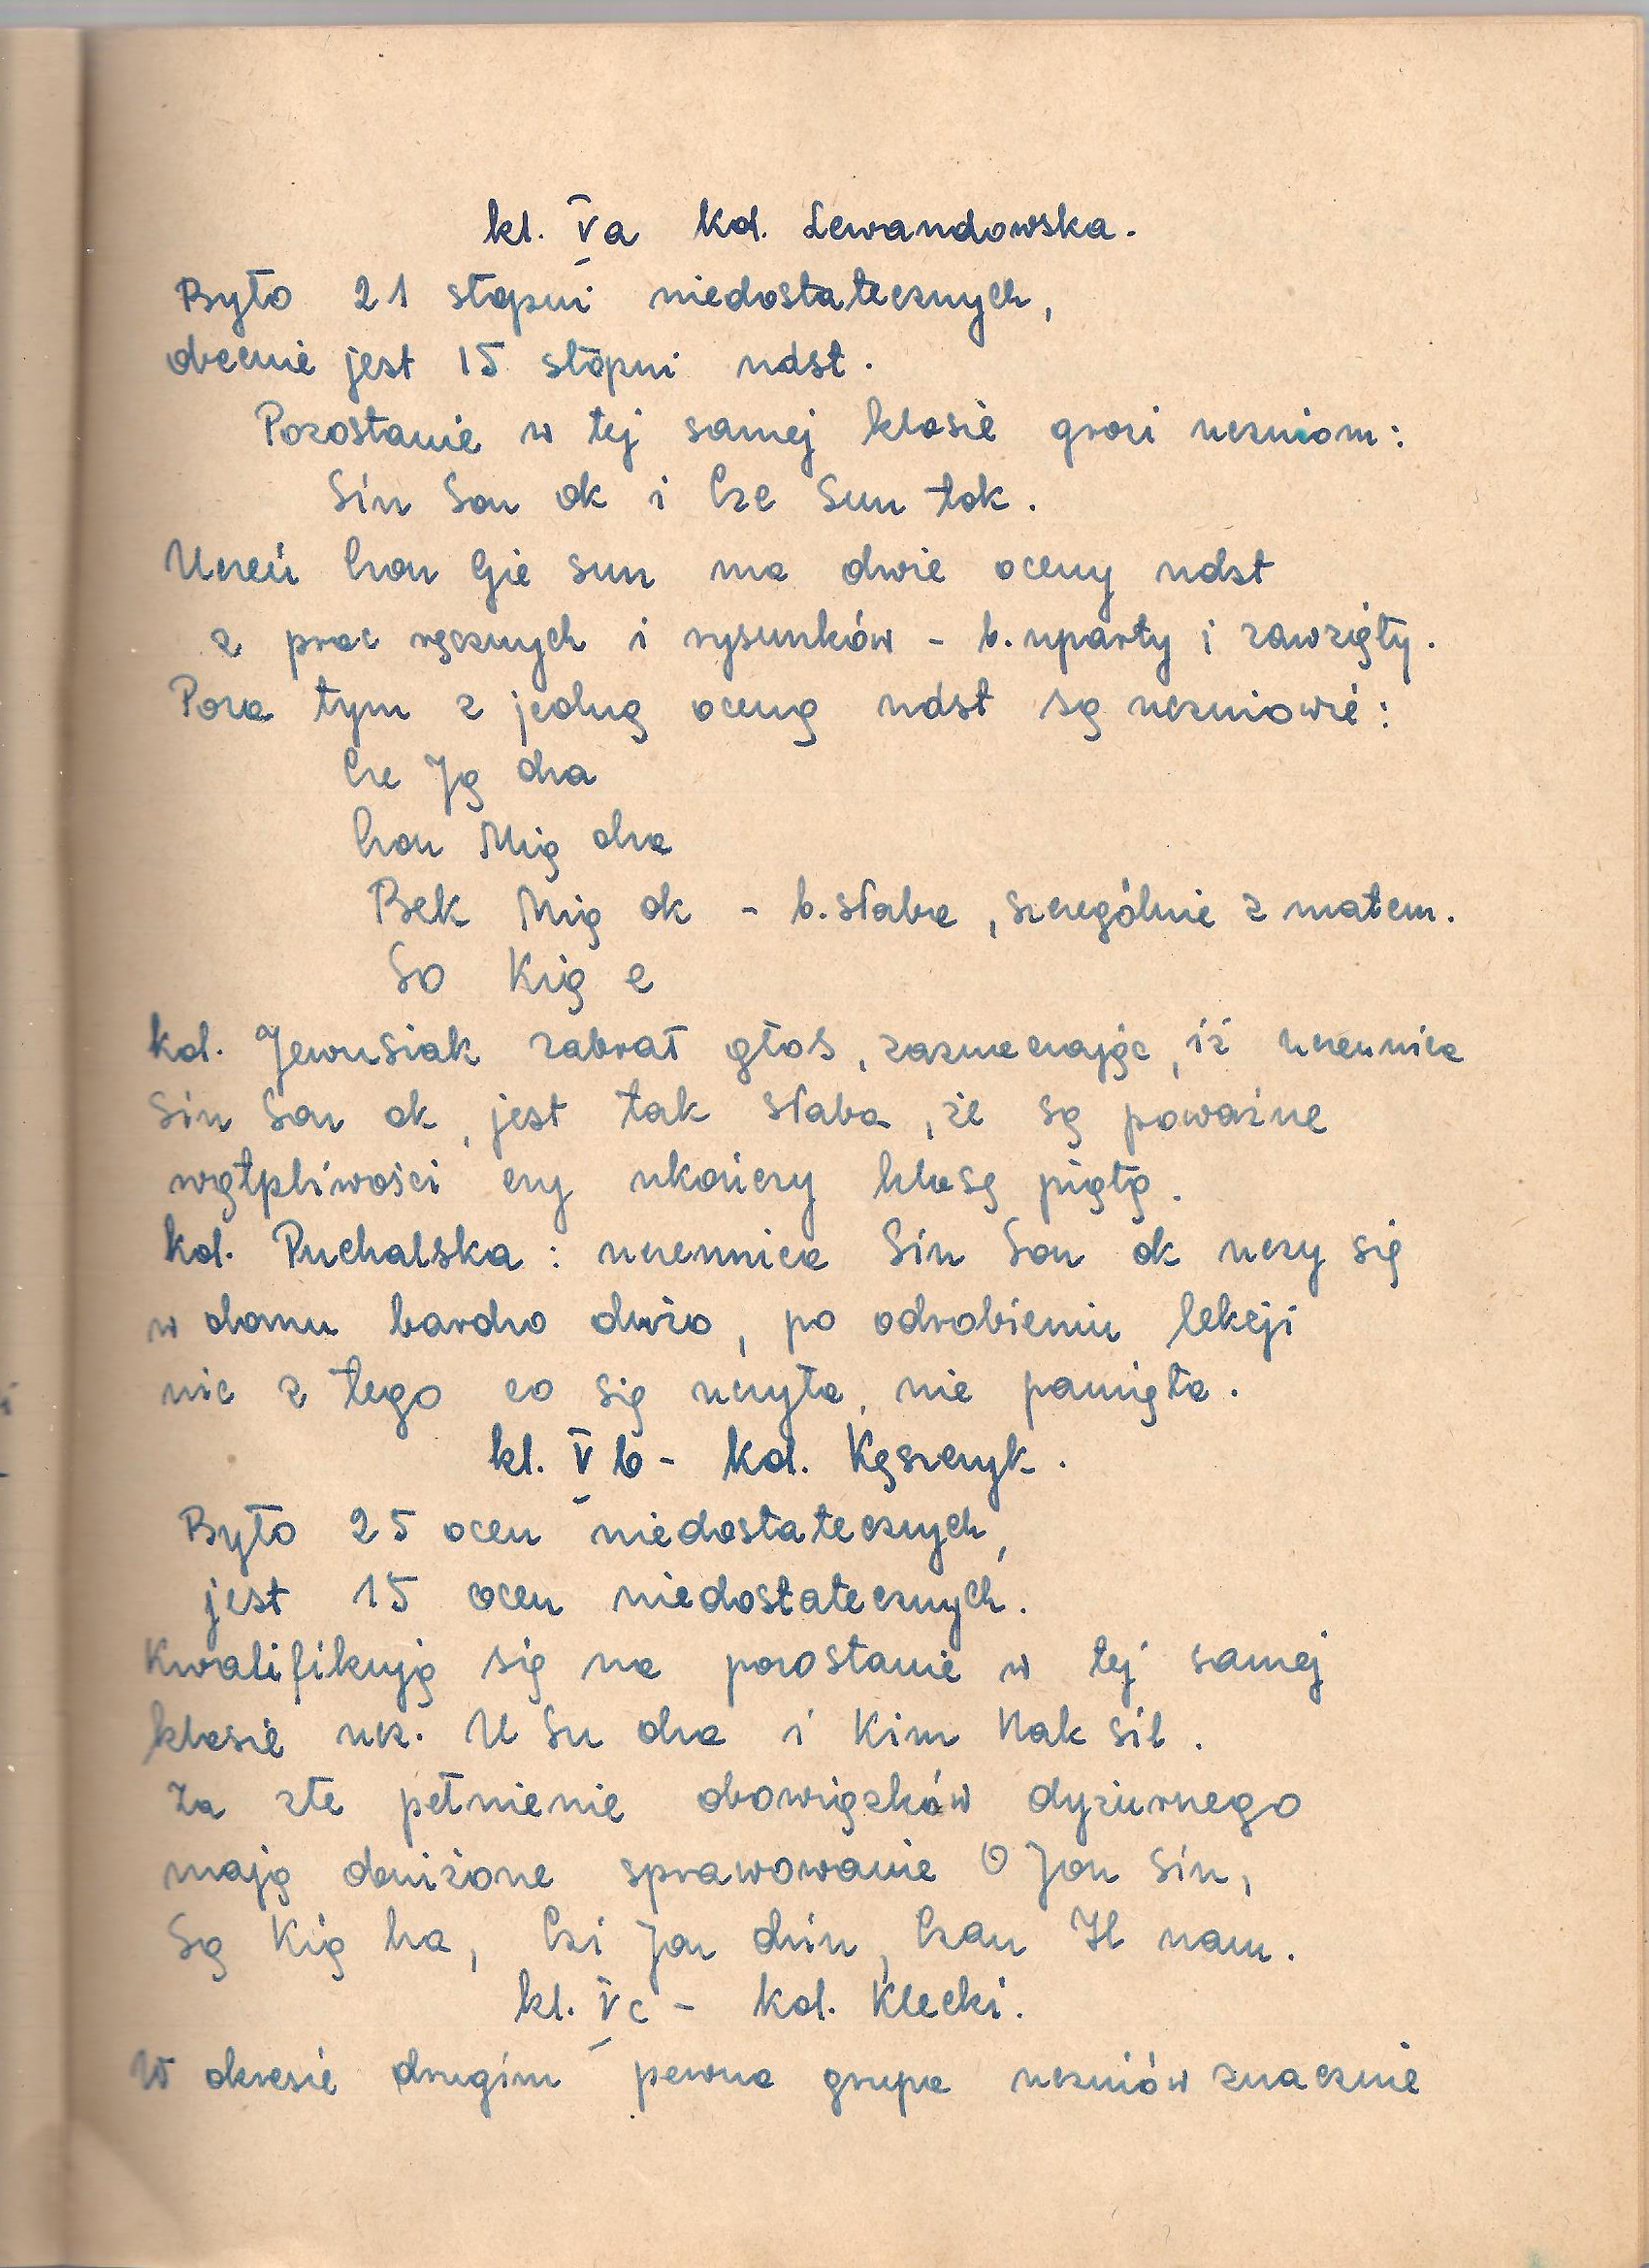 kl. Va kol. Lewandowska.
Było 21 stopni niedostatecznych,
obecnie jest 15 stopni ndst.
Pozostanie w tej samej klasie grozi uczniom:
Sin Son ok i Cze Sun tok.
Uczeń Czon Gie sun ma dwie oceny ndst
z prac ręcznych i rysunków - b. uparty i zawzięty.
Poza tym z jedną oceną ndst są uczniowie:
Cze Ję dza
Czon Mię dza
Bek Mię ok - b. słaba, szczególnie z matem.
So Kię e
kol. Jewusiak zabrał głos, zaznaczając, iż uczennica
Sin Son ok, jest tak słaba, że są poważne
wątpliwości czy ukończy klasę piątą.
kol. Puchalska: uczennica Sin Son ok uczy się
w domu bardzo dużo, po odrobieniu lekcji
nic z tego co się uczyła, nie pamięta.
kl. V b - kol. Kęszczyk.
Było 25 ocen niedostatecznych,
jest 15 ocen niedostatecznych.
Kwalifikują się na pozostanie w tej samej
klasie ucz. U Su dza i Kim Nak sil.
Za złe pełnienie obowiązków dyżurnego
mają obniżone sprawowanie O Jon Sin,
Są Kię ha, Czi Jon dzin, Czan Il nam.
kl. V c - kol. Klecki.
W okresie drugim pewna grupa uczniów znacznie